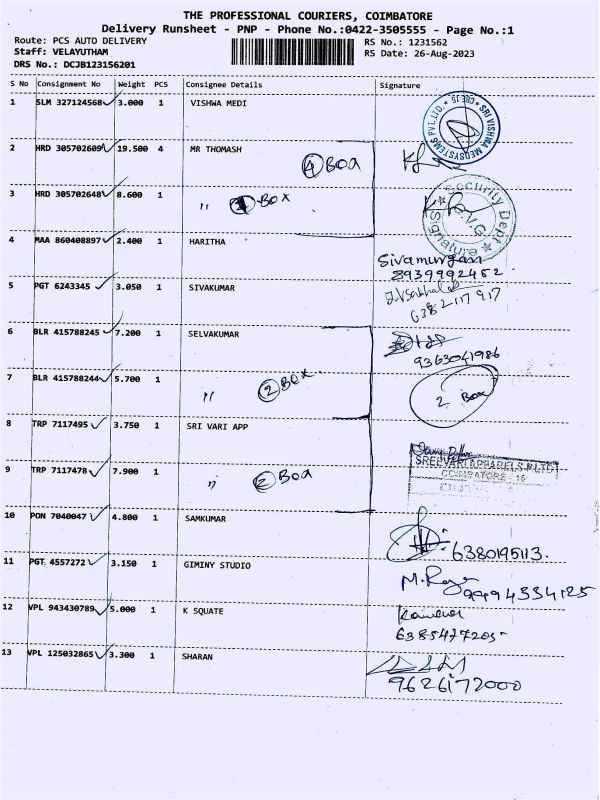 THE PROFESSIONAL COURIERS, COIMBATORE
Delivery Runsheet - PNP - Phone No.:0422-3505555 - Page No.:1
Route: PCS AUTO DELIVERY
RS No.: 1231562
Staff: VELAYUTHAM
RS Date: 26-Aug-2023
DRS No.: DCJB123156201
S No Consignment No Weight PCS Consignee Details Signature
1 SLM 327124568 3.000 1 VISHWA MEDI
SRI VISHWA MEDSYSTEMS PVT.LTD.
2 HRD 305702609 19.500 4 MR THOMASH 4 Box
3 HRD 305702648 8.600 1 " 1 -Box
Security Dept
Signature
4 MAA 860408897 2.400 1 HARITHA
Sivamurgan
8939992452
5 PGT 6243345 3.050 1 SIVAKUMAR
6382117917
6 BLR 415788245 7.200 1 SELVAKUMAR
9363041986
7 BLR 415788244 5.700 1 " 2 Box 2 Box
8 TRP 7117495 3.750 1 SRI VARI APP
SREE VARI APPARELS P LTD
COIMBATORE - 15
9 TRP 7117478 7.900 1 " 2 Box
10 PON 7040047 4.800 1 SAMKUMAR
6380195113.
11 PGT 4557272 3.150 1 GIMINY STUDIO
M.Raja
9994334125
12 VPL 943430789 5.000 1 K SQUATE
6385477205
13 VPL 125032865 3.300 1 SHARAN
9626172000